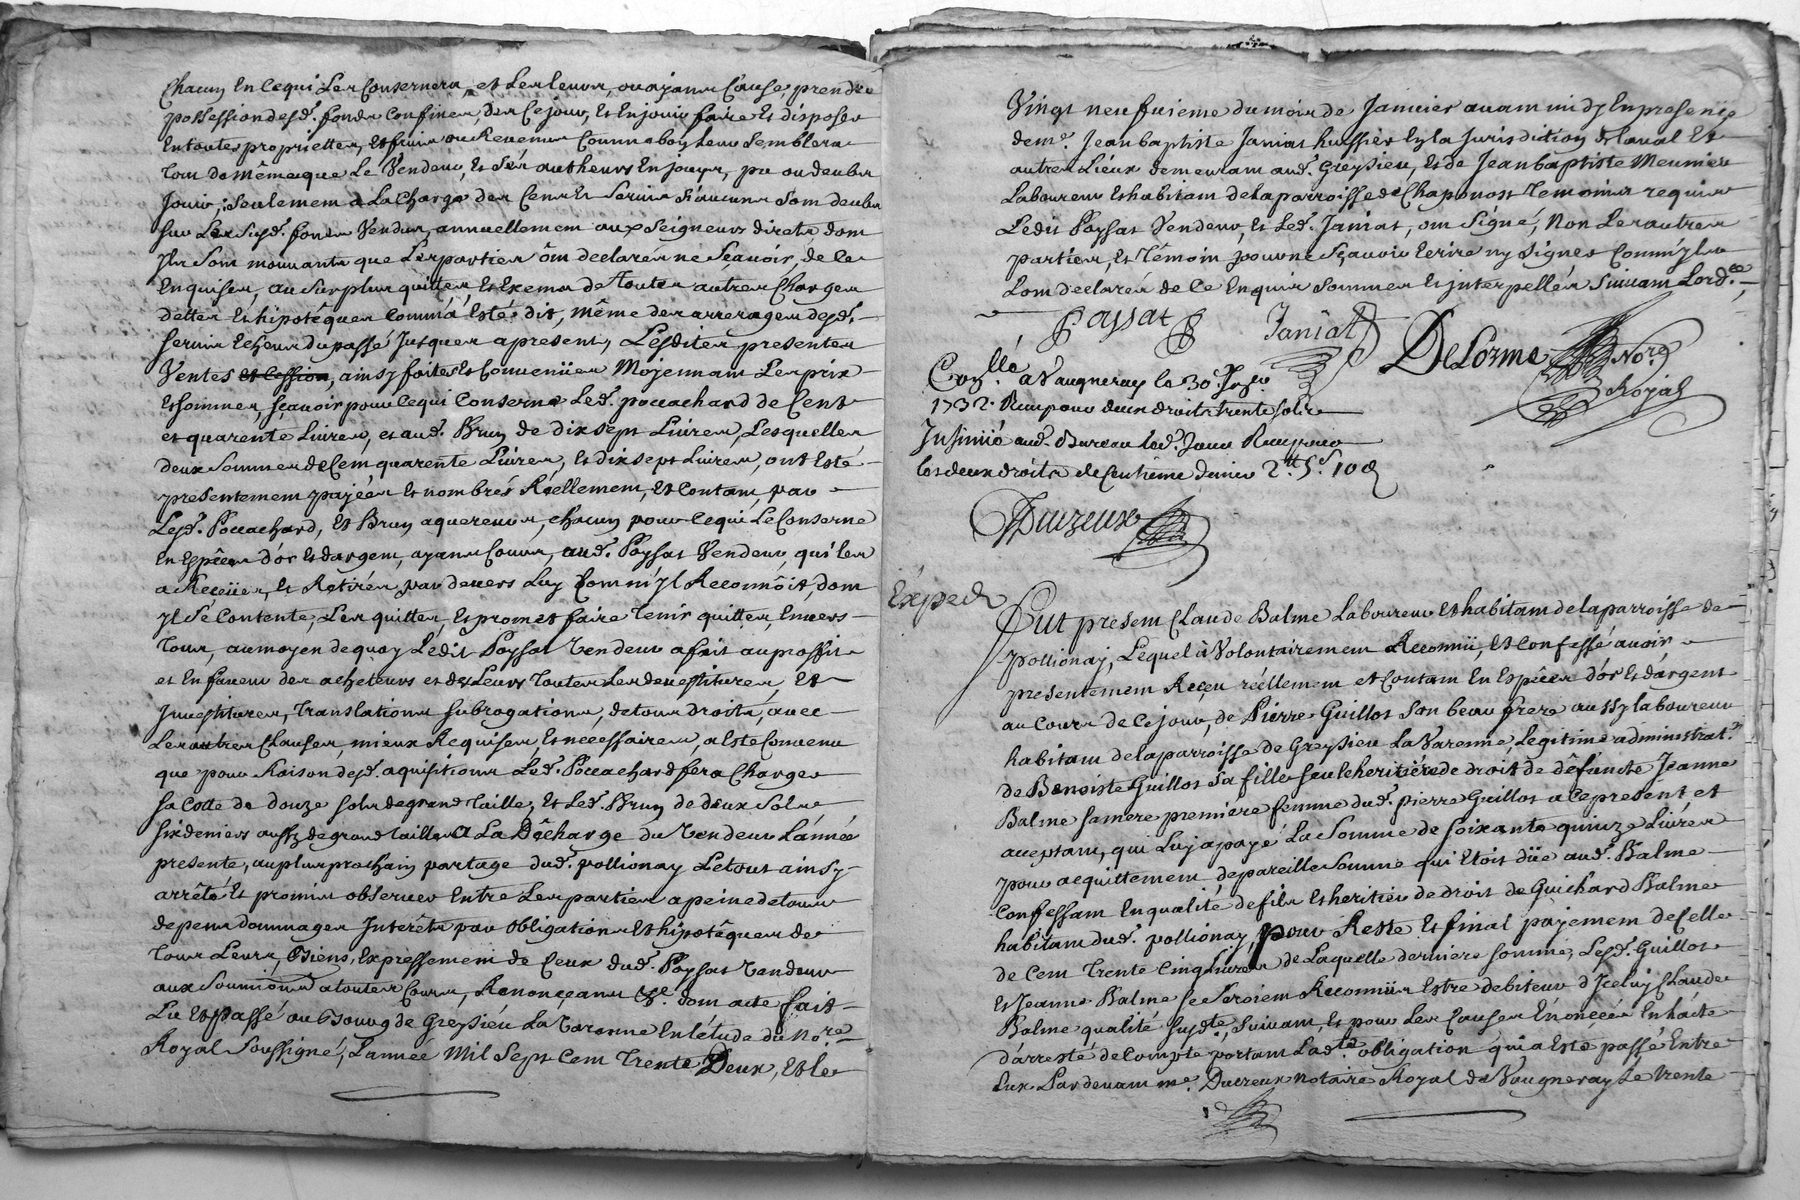 Chacun En Cequi Les Consernera, et Les leurs, ou ayans Cause, prendre
possession desd. fonds Confinés, des Cejour, Et Enjouir faire Et disposer
Entoutes proprietté, Et fruis ou Revenus Comme bon Leur Semblera
Tout de même que Le Vendeur, Et Ses autheurs En jouyt, pu ou deubs
Jouir, Seulement a La Charge des Cens Et Servis Si aucuns Sont deubs
Sur Les Susd. fonds Vendus, annuellement aux Seigneurs directs dont
Ils Sont mouvants que Les parties ont declarés ne Sçavoir, de Ce
Enquises, au Surplus quittes Et Exempts de Toutes autres Charges
dettes Et hipotêques Comm'a Esté dit, même des arrerages desd.
Servis Echeus du passé Jusques apresent, Lesdites presentes
Ventes et Cession, ainsy faites Et Convenües Mojennant Les prix
Et sommes, sçavoir pour Cequi Conserne Led. poccachard de Cent
et quarente Livres, et aud. Brun de dix sept Livres, Lesquelles
deux Sommes de Cent quarente Livres, Et dix sept Livres, ont Esté
presentement payées Et nombrés Réellement, Et Contant, par
Lesd. Poccachard, Et Brun aquereurs, chacun pour Cequi Le Conserne
En Espêces d'or Et dargent, ayans Cours, aud. Paÿsat Vendeur, qui les
a Reçües, Et Retirés, par devers Luy Comm'Jl Reconnôit, dont
Jl Sé Contente, Les quitter, Et promet faire Tenir quittes, Envers
Tous, au moyen de quoy Ledit Paÿsat Vendeur a fait au proffit
et En faveur des achêteurs et des Leurs Toutes Les devestitures, Et
Jnvestitures, Translations Subrogations, de tous droits, avec
Les autres Clauses, mieux Requises, Et necessaires, a Esté Convenu
que pour Raison desd. aquisitions Led. Poccachard fera Charger
Sa Cotte de douze Sols de grand Taille, Et Led. Brun de deux Sols
Six deniers aussy de grand Tailles A La Dêcharge du Vendeur L'année
presente, au plus prochain partage dud. pollionay Le tout ainsy
arrêté Et promis observer Entre Les parties a peine de tous
depens dommages Interêts par obligations Et hipotêques de
Tous Leurs, Biens, Expressement de Ceux dud. Paÿsat Vendeur
aux Soumions a toutes Cours, Renonçeans &c. dont acte fait
Lu Et passé au Bourg de Greÿsiéu La Varenne En létude du No.re
Royal Soussigné, L'année Mil Sept Cent Trente Deux, Et le
Vingt neufuieme du mois de Janvier avant midy En presence
de me. Jean baptiste Janiat huissier En la Jurisdiction de Laval Et
autres Lieux demeurant aud. Greÿsieu, Et de Jean baptiste Meunier
Laboureur Et habitant de La parroisse de Chaponost Temoins requis
Ledit Paÿsat Vendeur, Et Led. Janiat, ont Signé, Non Les autres
parties, Et Têmoin pour ne Sçavoir Ecrire ny Signer Comm'Jls
L'ont declarés de Ce Enquis Sommes Et interpellés Suivant Lord.ce
Passat
Janiat
DeLorme Nore
Royal
Con.llé a Vaugneray le 30e. Jer
1732. Reçu pour deux droits trente Sols
Insinué aud. Bureau led. Jour Reçu pour
les deux droits de Centieme denier 2tt 5s 10d
Ducreux
Expedié
Fut present Claude Balme Laboureur Et habitant de La parroisse de
pollionaj, Lequel à Volontairement Reconnü, Et Confessé avoir
presentement Reçeu réellement et Contant En Espêces d'or Et dargent
au Cours de Ce jour, de Pierre Guillot Son beau frere aussy laboureur
habitant de La parroisse de Greÿsieu La Varenne, Legitime administrat.r
de Benoiste Guillot Sa fille Seule heritiére de droit de défuncte Jeanne
Balme Sa mere premiere femme dud. pierre Guillot a Ce present et
aceptant, qui Luy a payé La Somme de Soixante quinze Livres
pour acquittement de pareille Somme qui Etoit düe aud. Balme
Confessant En qualité de fils Et heritier de droit de Guichard Balme
habitant dud. pollionay, pour Reste Et final pajement de Celle
de Cent Trente Cinq Livres de Laquelle derniere Somme, Lesd. Guillot
Et Jeanne Balme Se Seroient Reconnüs Estre debiteurs d'Jceluy Claude
Balme qualité Susd.te, Suivant, Et pour Les Causes Enoncées En L'acte
d'arresté de Compte portant Lad.te obligation qui a Esté passé Entre
Eux Pardevant me. Ducreux notaire Royal de Vaugneray Le trente